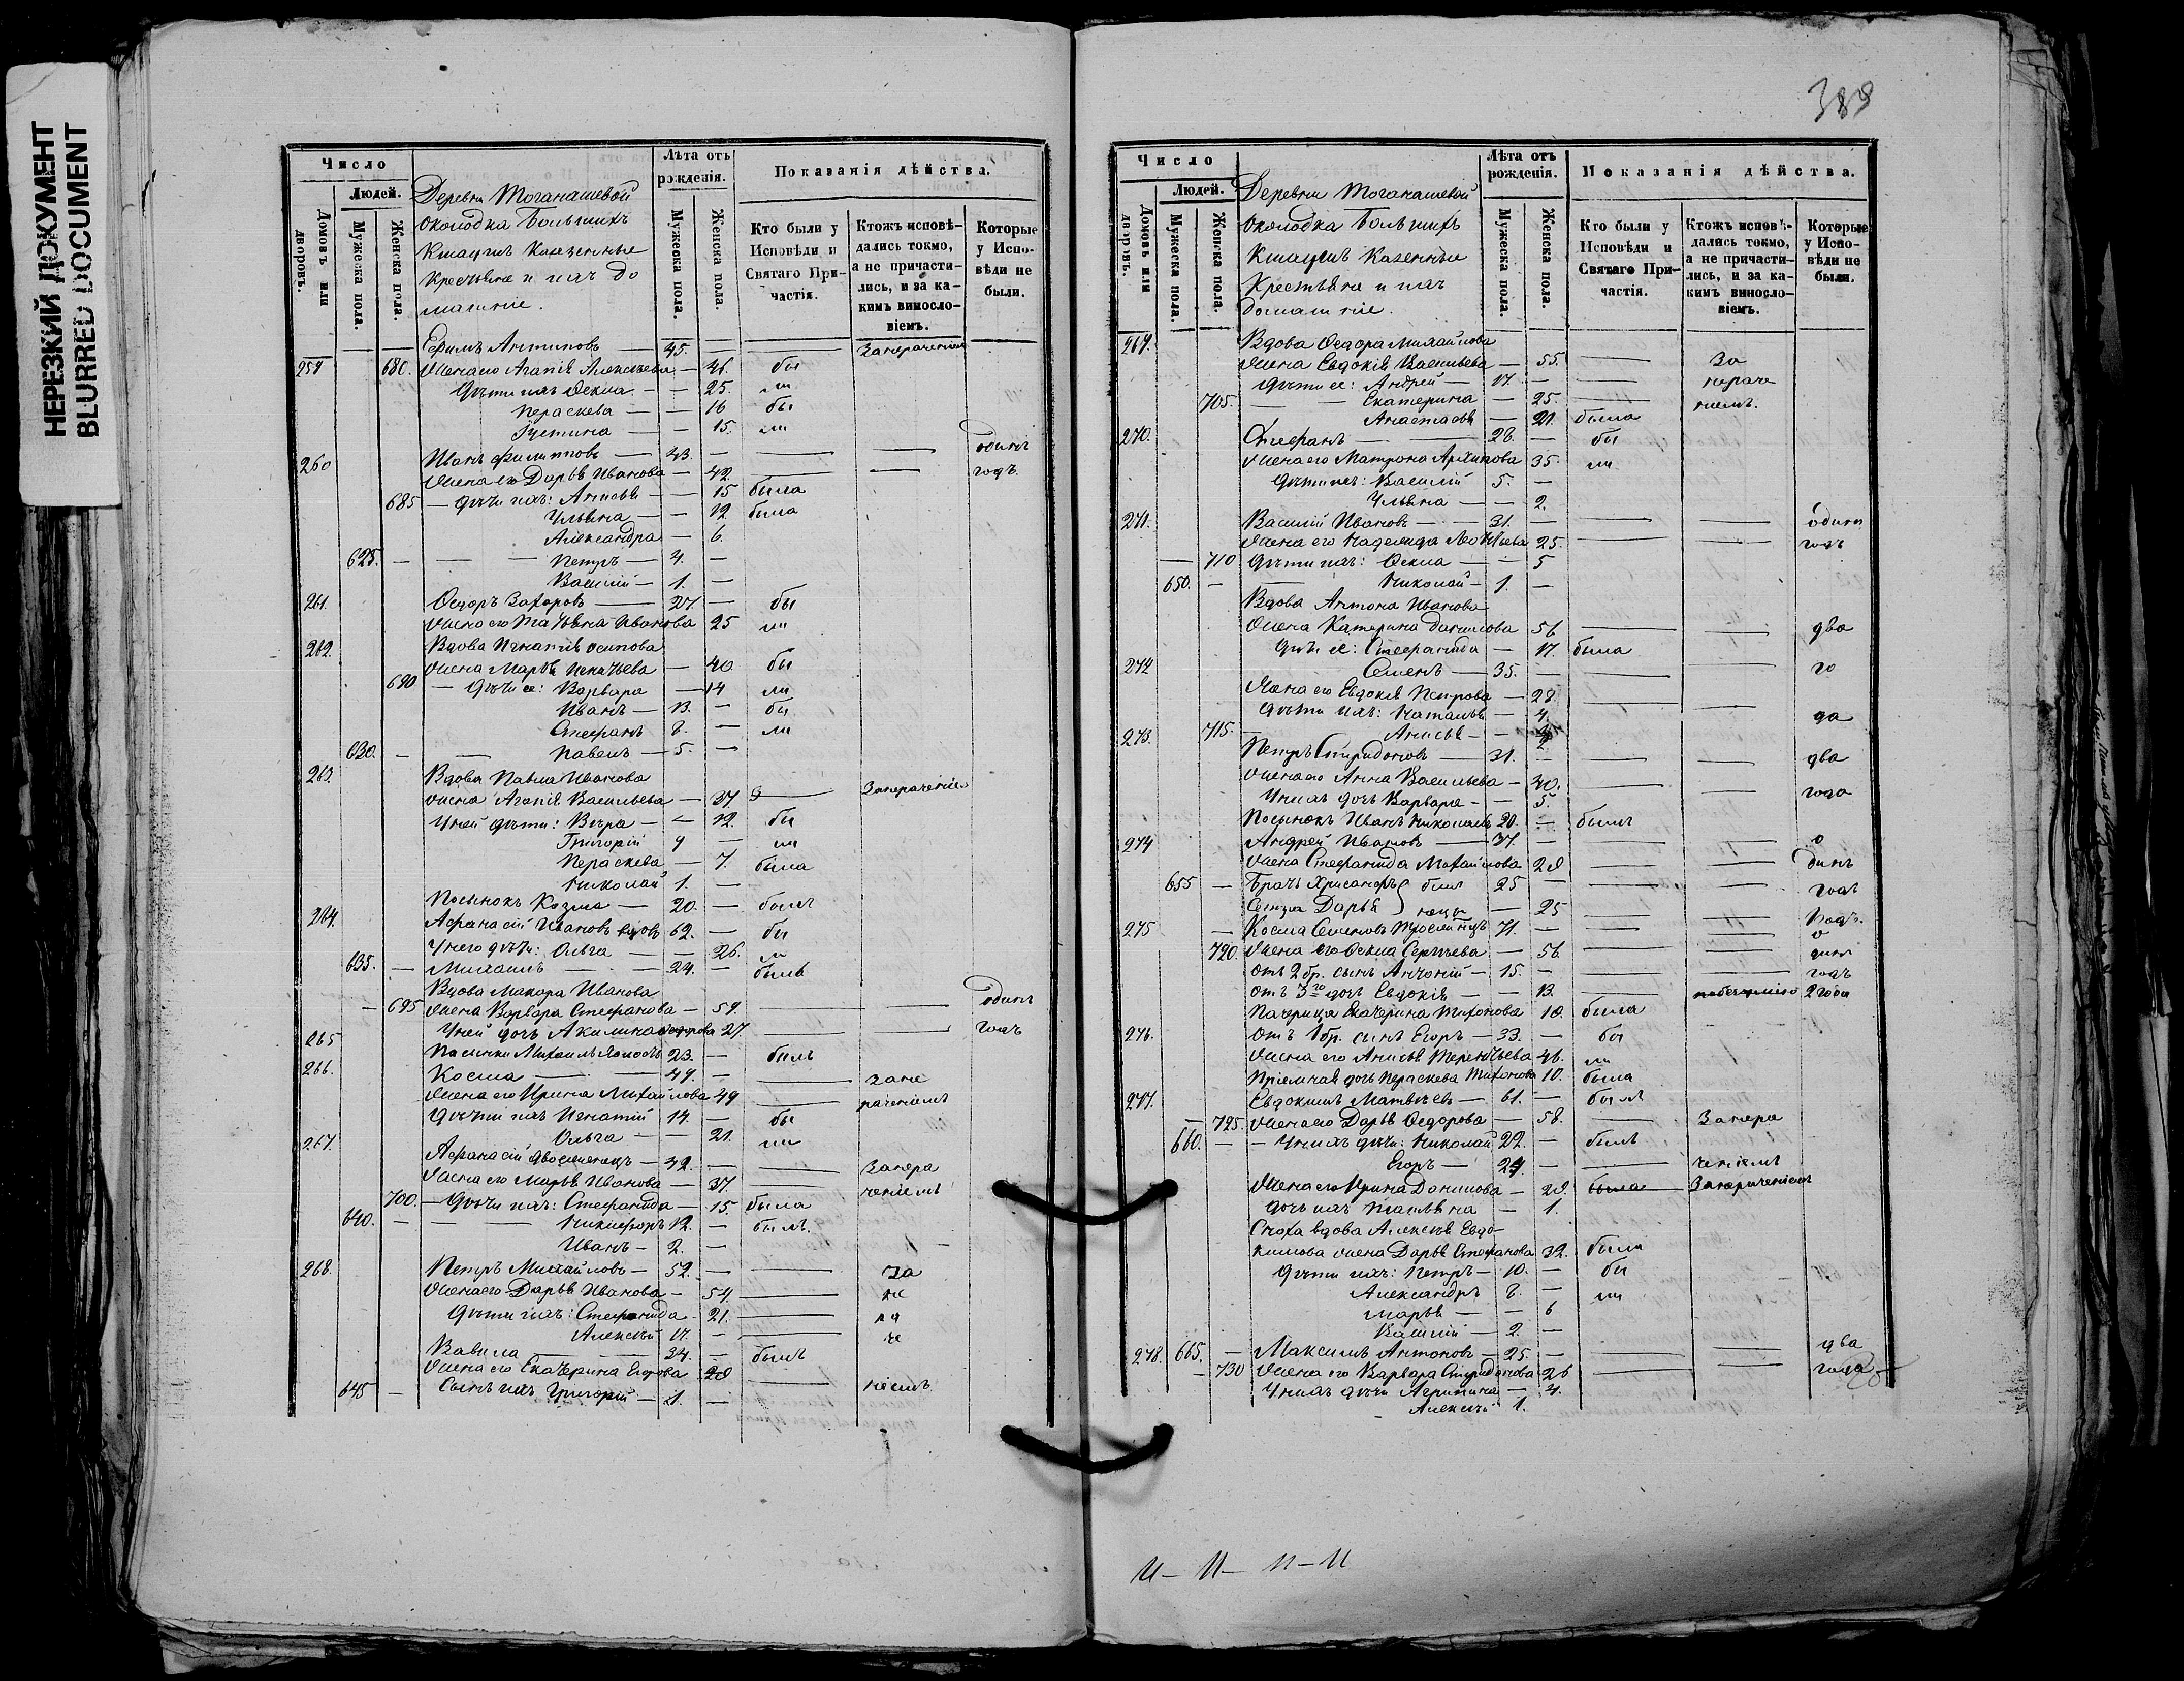 НЕРЕЗКИЙ ДОКУМЕНТ
BLURRED DOCUMENT
Число
Людей.
Домовъ или дворовъ.
Мужеска пола.
Женска пола.
Деревни Тоганашевой
околодка Большихъ
Казенные
Крестьяне и ихъ до
машніе.
Лѣта отъ рожденія.
Мужеска пола.
Женска пола.
Показанія дѣйства.
Кто были у Исповѣди и Святаго Причастія.
Ктожъ исповѣдались токмо, а не причастились, и за какимъ винословіемъ.
Которые у Исповѣди не были.
Ефимъ Антиповъ — 45. — —
259 680. Жена его Агапія Алексѣева — 46. бы
Дѣти ихъ Фекла — — 25. ли
Пераскева — — 16 бы
Устина — — 15. ли
260 Иванъ Филипповъ — 43. — — — одинъ
Жена его Дарья Иванова — 42 — — годъ.
685 — Дѣти ихъ: Анисья — — 15 была
Ульяна — — 12 была
Александра — 6.
625. — — — Петръ — 4. —
Василій — 1. —
261. Ѳедоръ Захаровъ — 27. — бы
Жена его Татьяна Иванова 25 ли
262. Вдова Игнатія Осипова
Жена Марья Игнатьева — 40 бы
690 — Дѣти ее: Варвара — 14 ли
Иванъ — 13. — бы
Стефанъ 8. — ли
630. — — Павелъ — 5. —
263. Вдова Павла Иванова
Жена Агапія Васильева — 37. —
У ней дѣти: Вѣра — — 12. бы
Григорій 9 — ли
Пераскева — 7. была
Николай 1. —
Посынокъ Козма — 20. — былъ
264. Афанасій Ивановъ вдовъ 62. — бы
У него дѣти: Ольга — — 26. ли
635. — Михаилъ — — 24. — былъ
Вдова Макара Иванова
— 695 Жена Варвара Стефанова — 59. — — одинъ
265 У ней дочь Акилина Ѳедорова 27 — — годъ
Пасынки Михаилъ 23. — былъ
266. Косма — — 49. — —
Жена его Ирина Михайлова 49 — раченіемъ
Дѣти ихъ Игнатій 14. — бы
Ольга — — 21. ли
267. Афанасій — 42. — — Занера
Жена его Марья Иванова — 37. — ченіемъ
700. — Дѣти ихъ: Стефанида — 15. была
640. — — — Никифоръ 12. — былъ.
Иванъ — 2. —
268. Петръ Михайловъ — 52. — — За
Жена его Дарья Иванова — 54. — не
Дѣти ихъ: Стефанида — 21. — ра
Алексѣй 17. — — че
Вавила — — 34. — былъ
Жена его Екатерина Егорова 28 —
645 — Сынъ ихъ Григорій — 1. — ніемъ.
389
Число
Людей.
Домовъ или дворовъ.
Мужеска пола.
Женска пола.
Деревни Тоганашевой
околодка Большихъ
Казенные
Крестьяне и ихъ
домашніе.
Лѣта отъ рожденія.
Мужеска пола.
Женска пола.
Показанія дѣйства.
Кто были у Исповѣди и Святаго Причастія.
Ктожъ исповѣдались токмо, а не причастились, и за какимъ винословіемъ.
Которые у Исповѣди не были.
269. Вдова Ѳедора Михайлова
Жена Евдокія Васильева — 55. — За
Дѣти ее: Андрей — 17. — — нераче
705. — — Екатерина — 25. — ніемъ.
Анастасья — 21. была
270. Стефанъ — — 28. — бы
Жена его Матрона Архипова 35. ли
Дѣти ихъ: Василій 5. —
Ульяна — — 2.
271. Василій Ивановъ — — 31. — — — одинъ
Жена его Надежда Леонтьева 25. — — годъ
— 710 Дѣти ихъ: Фекла — — 5
650. — — Николай — 1. —
Вдова Антона Иванова
Жена Катерина Данилова 56 — — два
Дочь ее: Стефанида — 17. была
272 Семенъ — 35. — — — го
Жена его Евдокія Петрова — 28.
Дѣти ихъ: Наталья — 4. — — да
715. — Анисья — —
273. Петръ Спиридоновъ — 31. — — — два
Жена его Анна Васильева — 40. — года
У нихъ дочь Варвара — — 5.
Посынокъ Иванъ Николаевъ 20. — былъ
274 Андрей Ивановъ — 37. — — — о
Жена Стефанида Михайлова 28 — — динъ
655 — Братъ Хрисанфъ 25 — — — годъ
Сестра Дарья — 25 — —
275 — Косма Семеновъ 71. — — — о
720. Жена его Фекла Сергѣева — 56. — — динъ
отъ 2 бр. сынъ Антоній — 15. — — — годъ
отъ 3го дочь Евдокія — — 13. — 2 года
Падчерица Екатерина Тихонова 18. была
276. отъ 1 бр. сынъ Егоръ — 33. — бы
Жена его Анисья Терентьева 46. ли
Пріемная дочь Пераскева Тихонова 10. была
277. Евдокимъ Матвѣевъ — 61. — былъ
— 725. Жена его Дарья Ѳедорова — 58. — Занера
660. — — У нихъ дѣти: Николай 22. — былъ
Егоръ — 24. — — ченіемъ
Жена его Ирина Данилова — 28. была Занераченіемъ
Дочь ихъ Татьяна — 1.
Сноха вдова Алексѣя Евдо-
кимова жена Дарья Стефанова 32. была
Дѣти ихъ: Петръ — 10. — бы
Александръ 8. — ли
Марья — — 6
Василій — 2. —
278. 665. — Максимъ Антоновъ — 25. — — — два
— 730 Жена его Варвара Спиридонова 26 — — года
У нихъ дѣти Агрипина — 4.
Алексѣй 1.